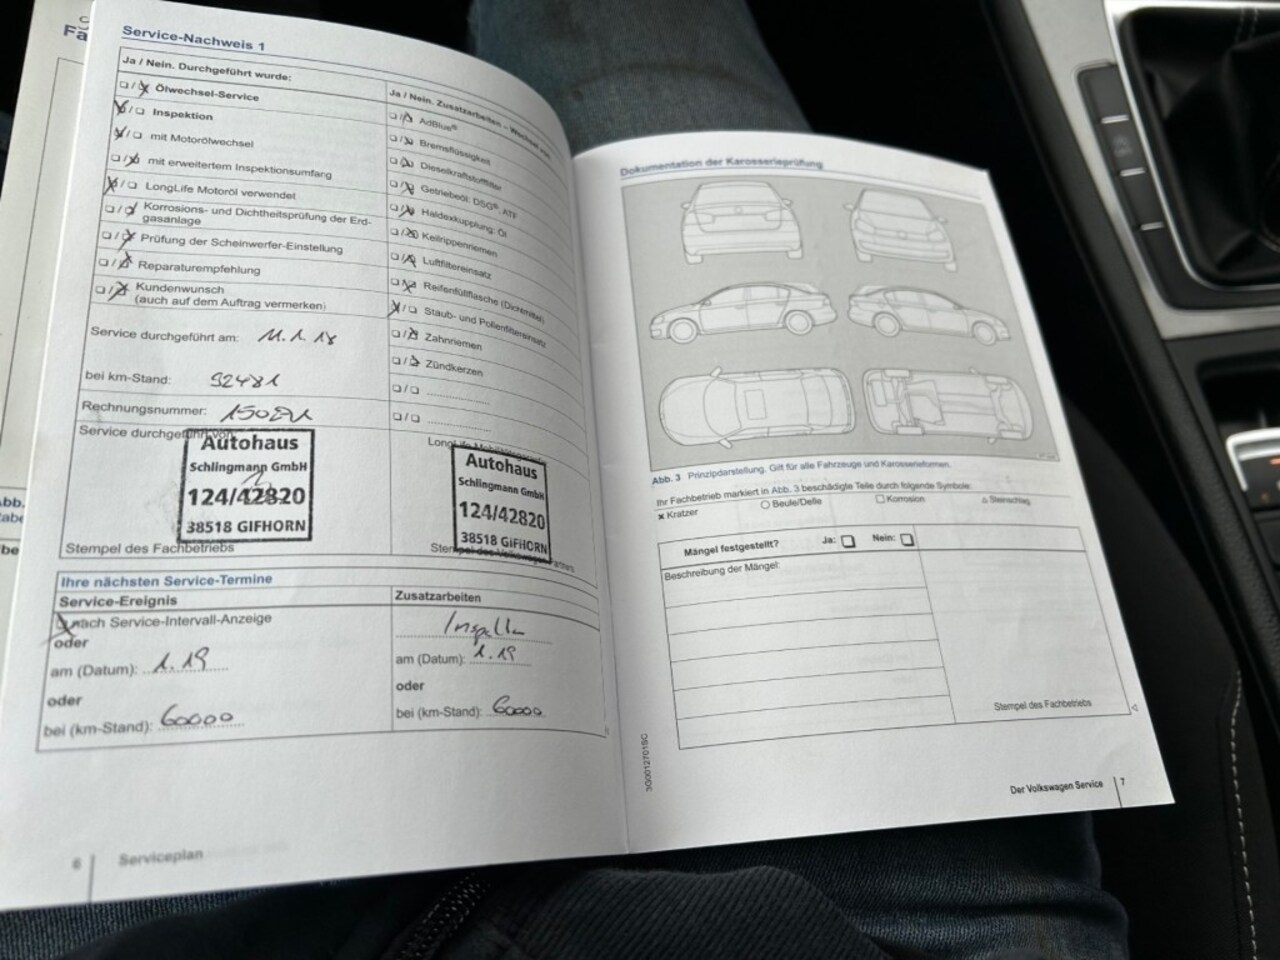 Fa
Service-Nachweis 1
Ja / Nein. Durchgeführt wurde:
Ölwechsel-Service
Inspektion
mit Motorölwechsel
mit erweitertem Inspektionsumfang
LongLife Motoröl verwendet
Korrosions- und Dichtheitsprüfung der Erd-
gasanlage
Prüfung der Scheinwerfer-Einstellung
Reparaturempfehlung
Kundenwunsch
(auch auf dem Auftrag vermerken)
Ja / Nein. Zusatzarbeiten – Wechsel von:
AdBlue®
Bremsflüssigkeit
Dieselkraftstofffilter
Getriebeöl: DSG®, ATF
Haldexkupplung: Öl
Keilrippenriemen
Luftfiltereinsatz
Reifenfüllflasche (Dichtmittel)
Staub- und Pollenfiltereinsatz
Zahnriemen
Zündkerzen
Service durchgeführt am: 11.1.18
bei km-Stand:
Rechnungsnummer:
Service durchgeführt von:
Autohaus
Schlingmann GmbH
124/42820
38518 GIFHORN
Stempel des Fachbetriebs
Autohaus
Schlingmann GmbH
124/42820
38518 GIFHORN
Stempel des Volkswagen Partners
Ihre nächsten Service-Termine
Service-Ereignis
nach Service-Intervall-Anzeige
oder
am (Datum): 1.19
oder
bei (km-Stand): 60000
Zusatzarbeiten
am (Datum): 1.19
oder
bei (km-Stand): 60000
6 Serviceplan
Dokumentation der Karosserieprüfung
Abb. 3 Prinzipdarstellung. Gilt für alle Fahrzeuge und Karosserieformen.
Ihr Fachbetrieb markiert in Abb. 3 beschädigte Teile durch folgende Symbole:
x Kratzer Beule/Delle Korrosion Steinschlag
Mängel festgestellt? Ja: Nein:
Beschreibung der Mängel:
Stempel des Fachbetriebs
3G0012701SC
Der Volkswagen Service 7